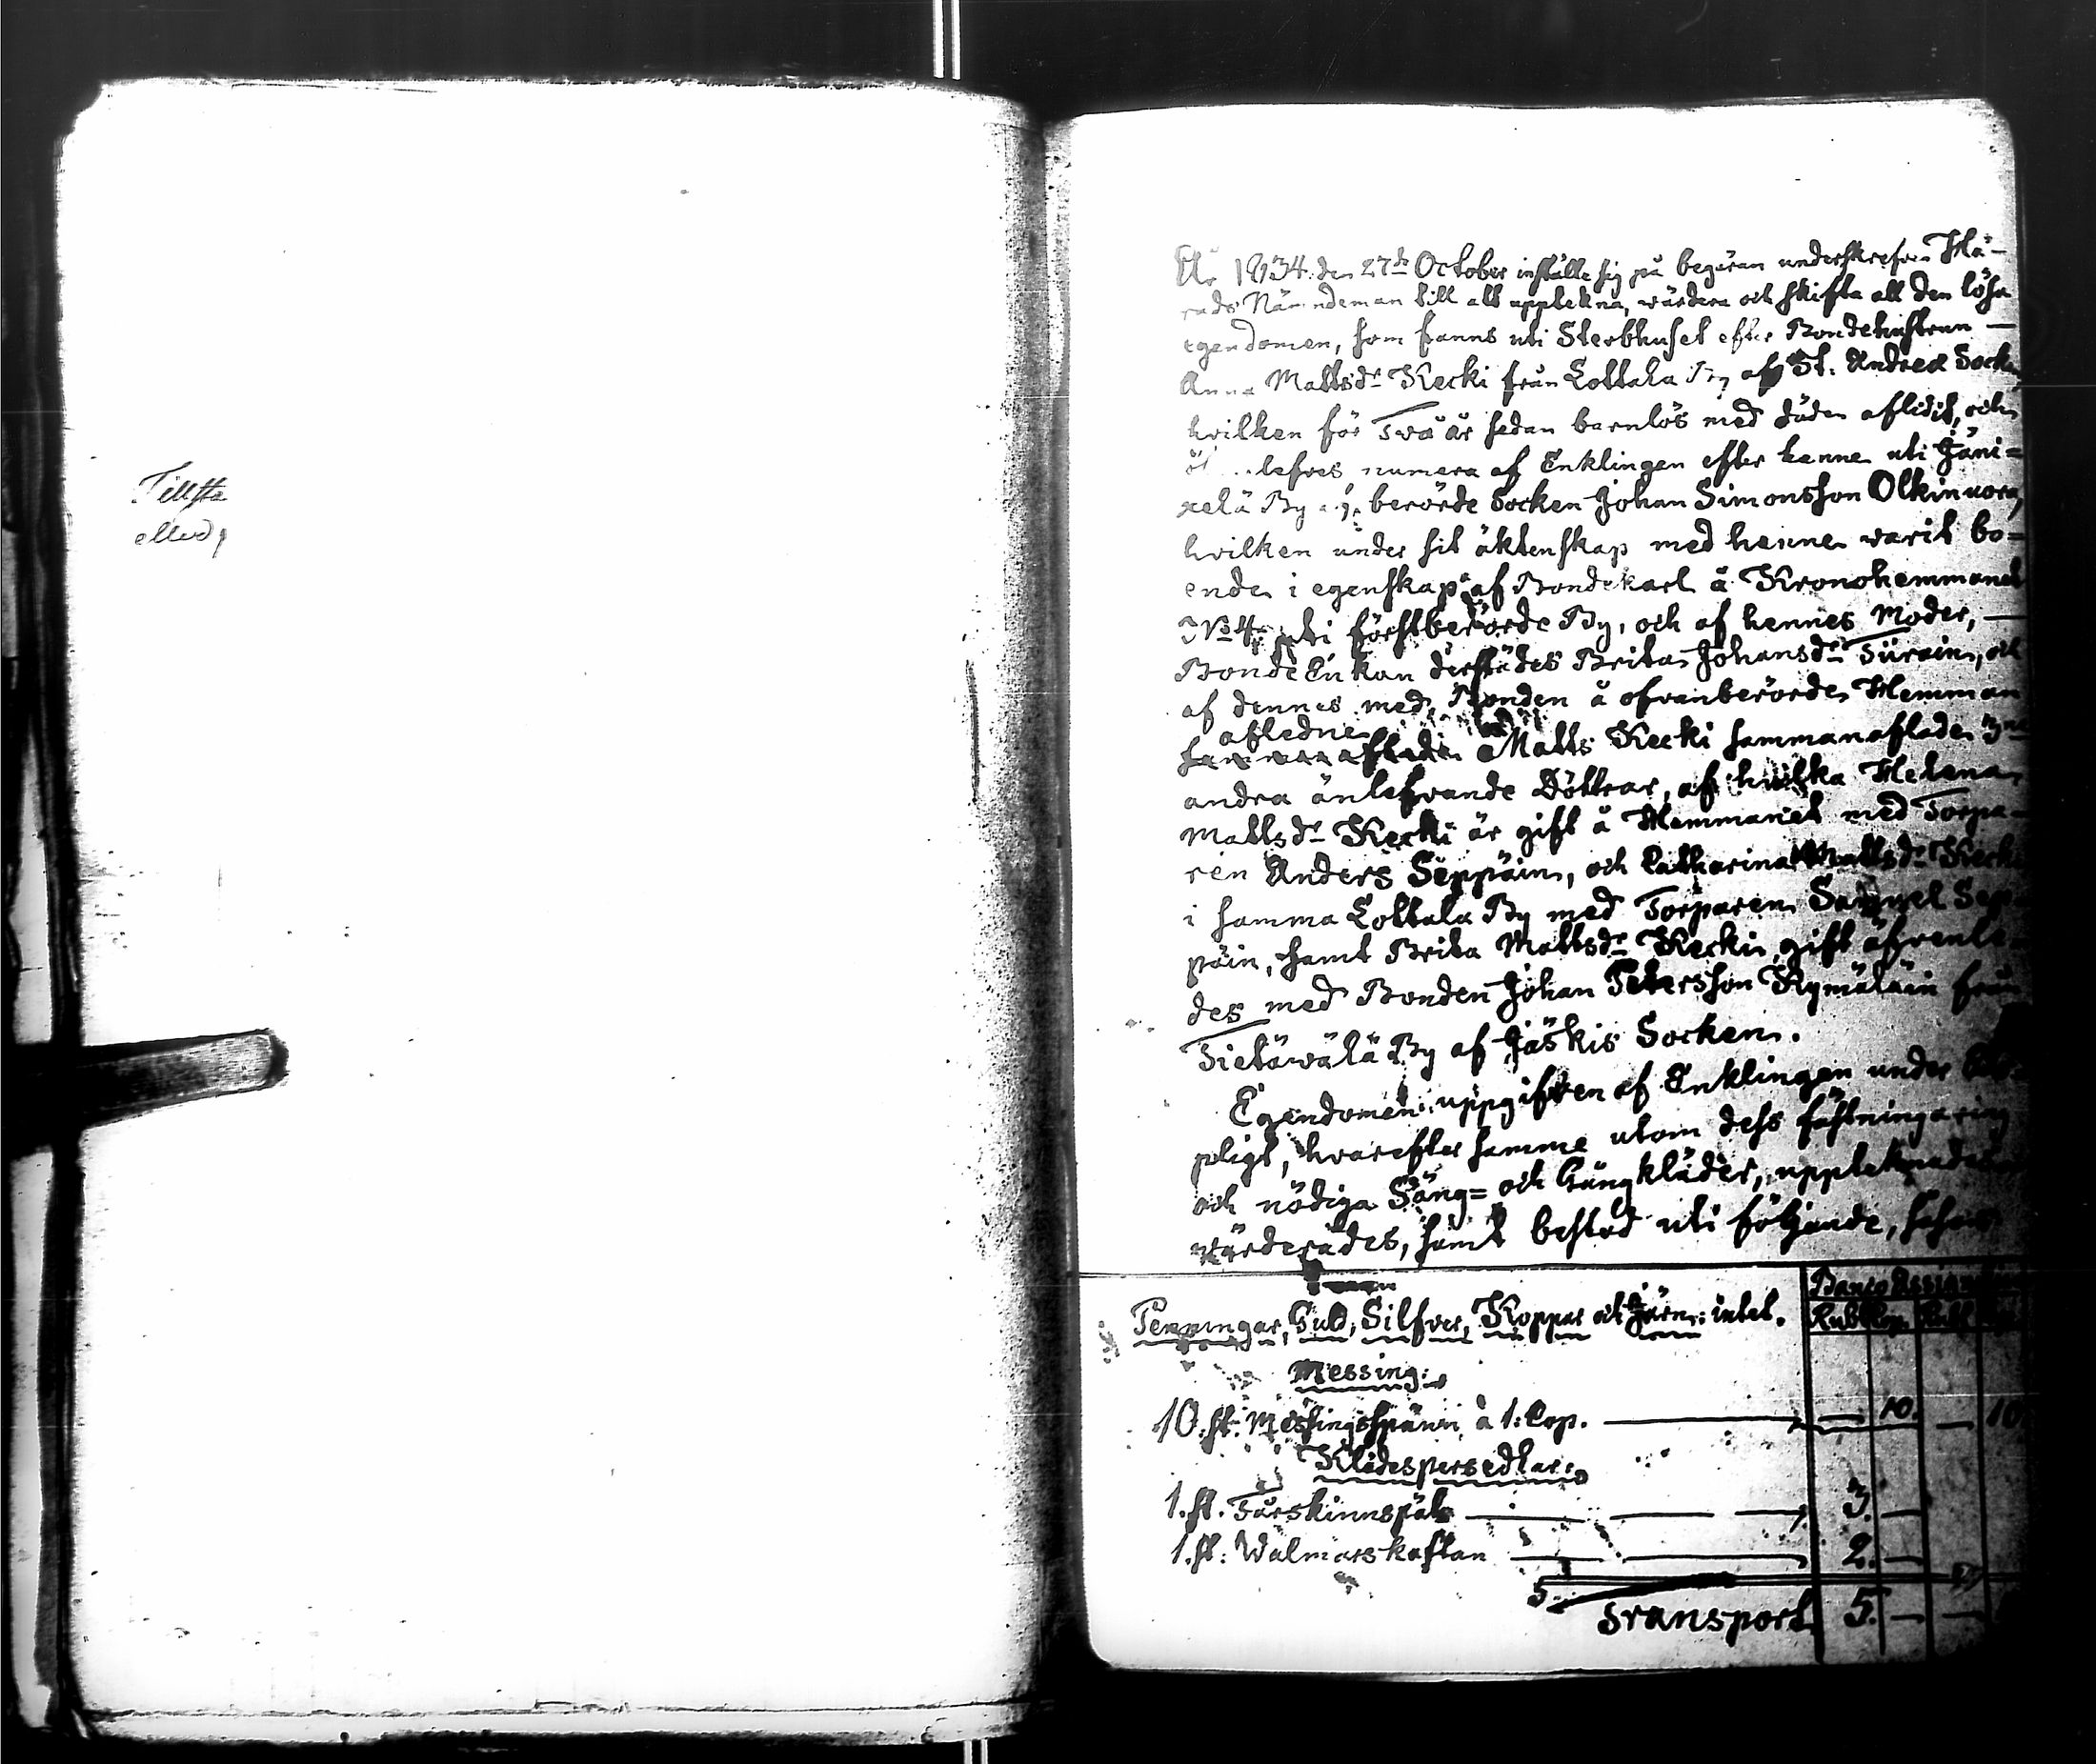 Tillsta
År 1834 den 27de October inställe sig på begäran underskrefven Hä-
rads Nämndeman till att upptekna, wärdera och skifta all den lösa
egendomen, som fanns uti Sterbhuset efter Bondehustrun —
Anna Mattsdr Kecki från Lottala By af St. Andreæ Socken,
hvilken för Två år sedan barnlös med döden aflidit, och
lefves numera af Enklingen efter henne uti Jäni=
xelä By berörde Socken Johan Simonsson Olkinuora,
hvilken under sit äktenskap med henne warit bo=
ende i egenskap af Bondekarl å Kronohemmanet
No 4 uti förstberörde By, och af hennes Moder, —
Bonde Enkan derstädes Brita Johansdr Türäin, och
af dennes med Bonden å ofvanberörde Hemman
afledne
sammanaflade Matts Kecki sammanaflade 3ne
andra änlefvande Döttrar, af hvilka Helena
Mattsdr Kecki är gift å Hemmanet med Torpa-
ren Anders Seppäin, och Catharina Mattsdr Kecki
i samma Lottala By med Torparen Samuel Sep-
päin, samt Brita Mattsdr Kecki, gift äfvenle-
des med Bonden Johan Petersson Kymäläin från
Tietäwälä By af Jäskis Socken.
Egendomen uppgifven af Enklingen under Eds-
pligt, hvarefter samme utom dess fästningaring
och nödiga Säng= och Gångkläder, uppteknades
wärderades, samt bestod uti följande, såsom
Banco Assign
Penningar, Guld, Silfver, Koppar och Järn: intet. Rub Kop. Rub
Messing:
10. st. Messingsspänn à 1. Cop. — — 10. — 10
Klädespersedlar:
1. st. Fårskinnspäls — 3. —
1. st. Walmarskaftan — 2. —
5.
Transport 5. — —